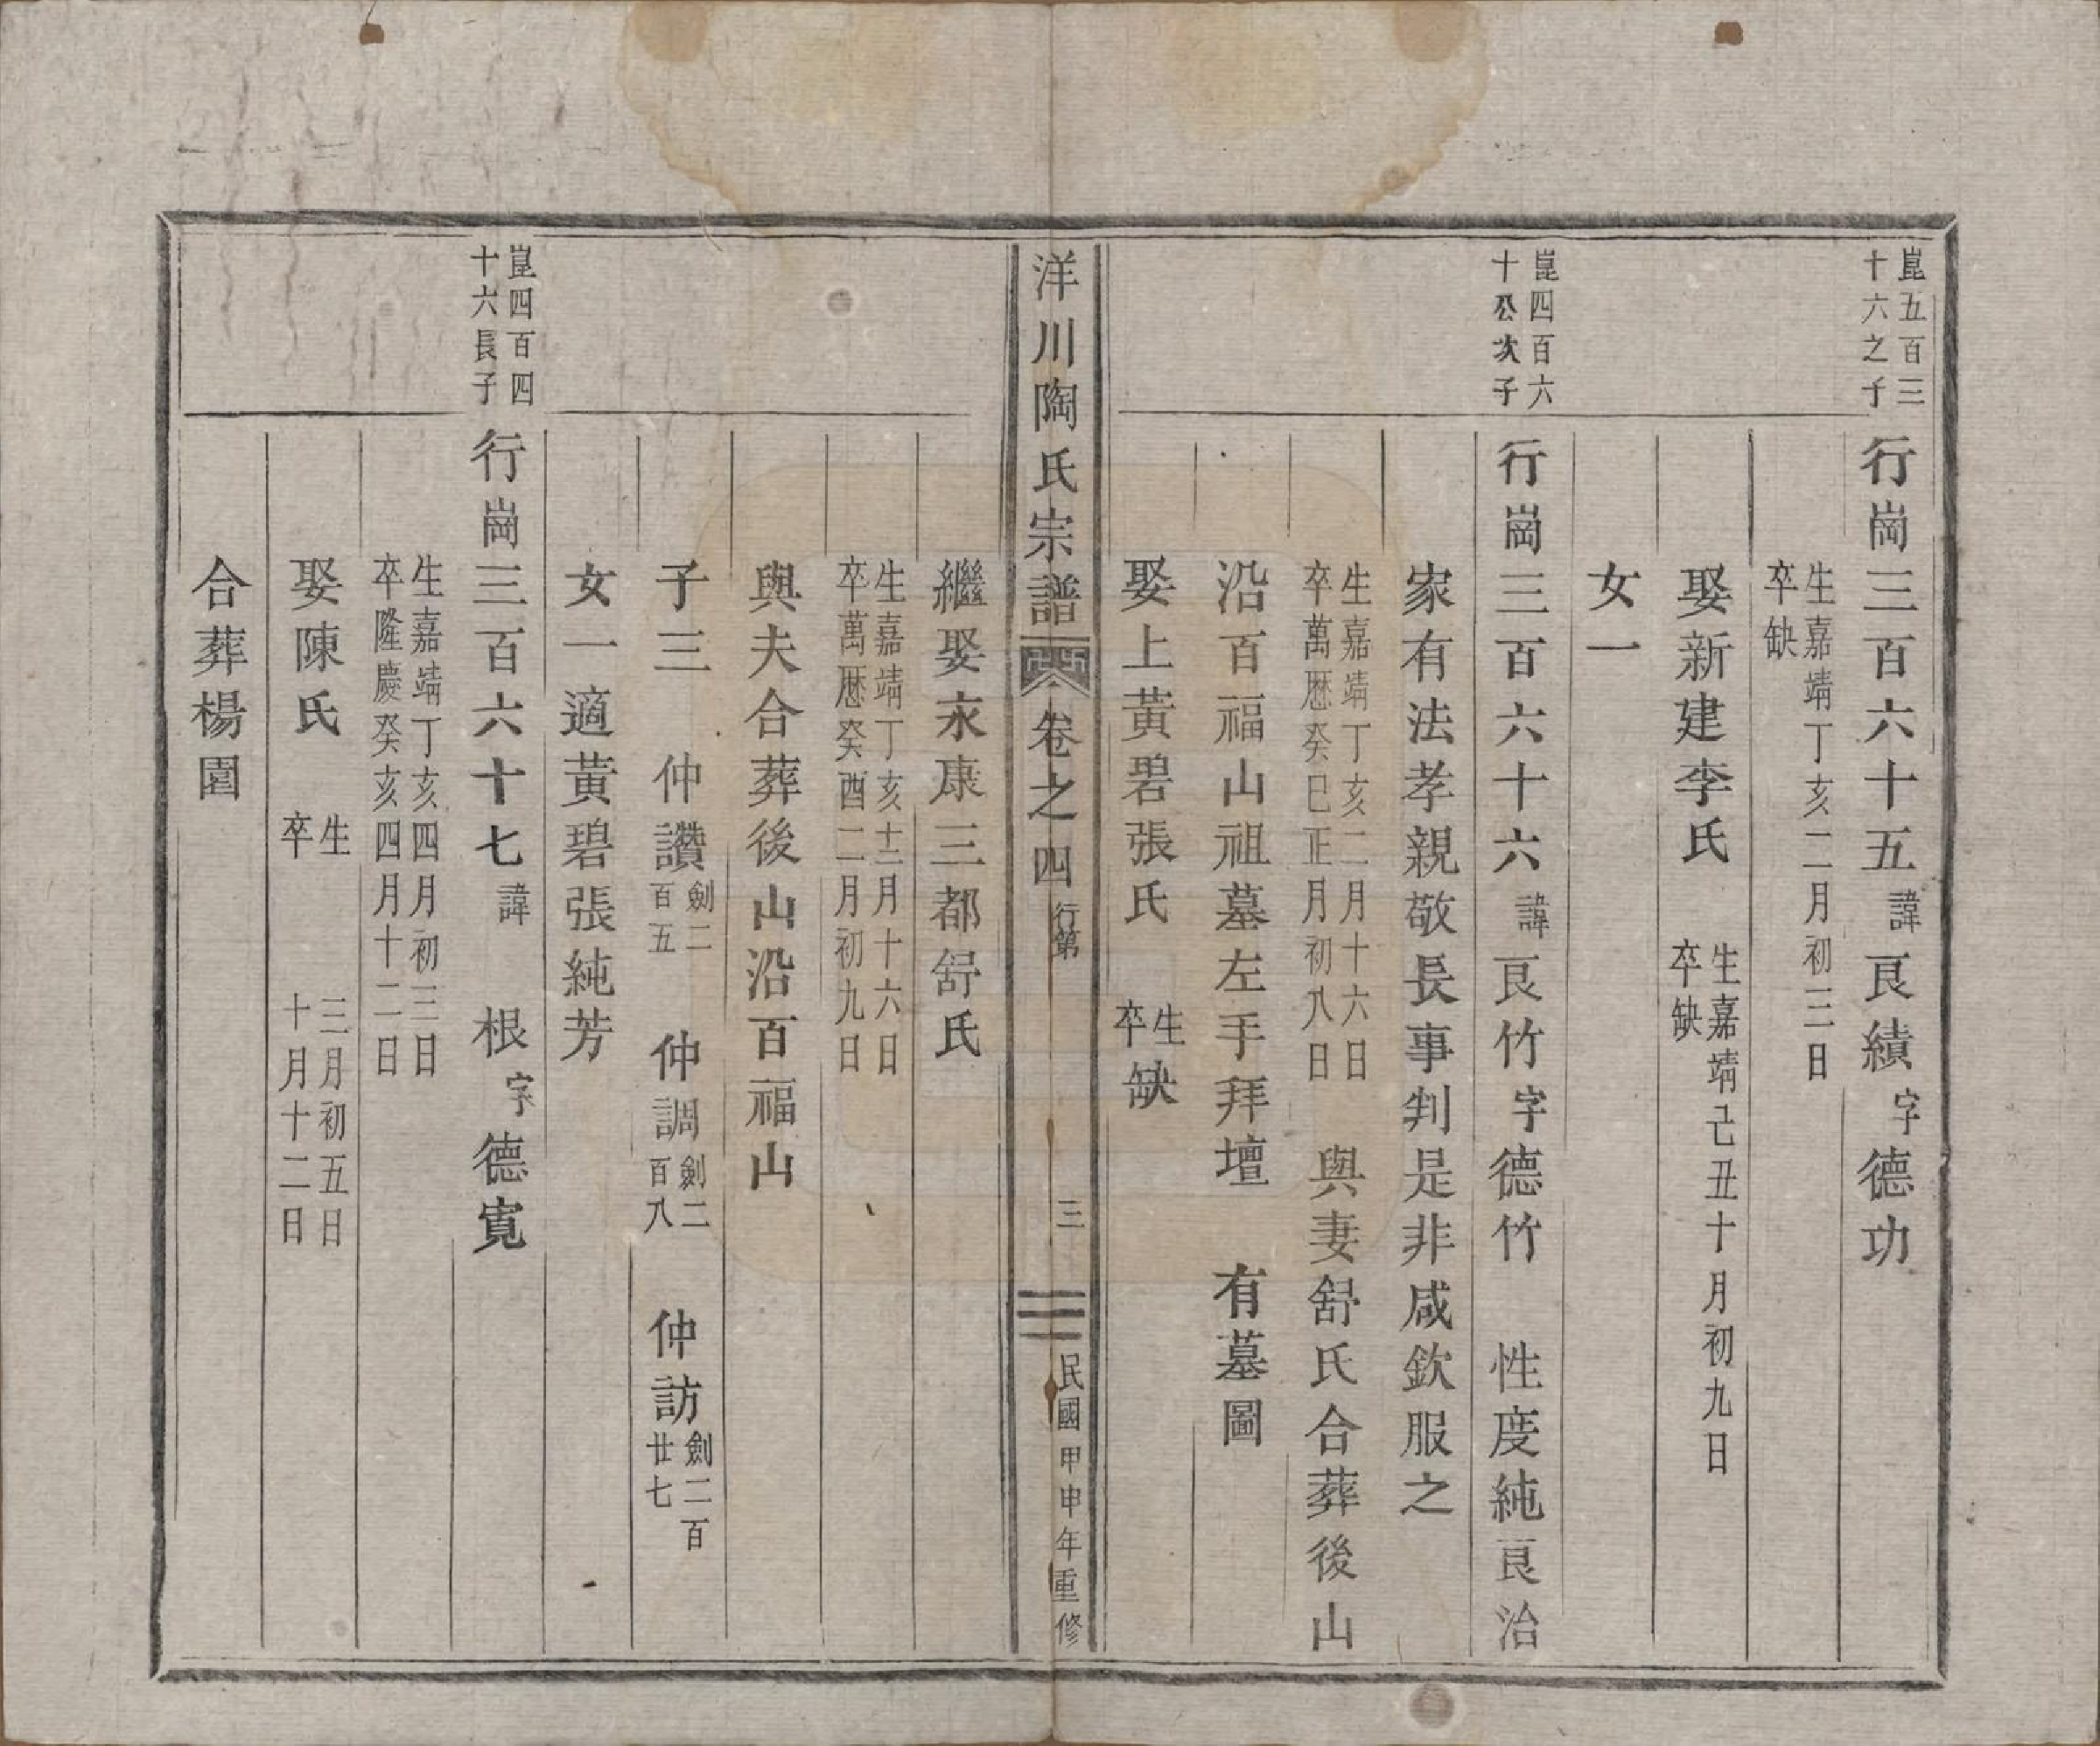 崑五百三
十六之子
行崗三百六十五諱良績字德功
生嘉靖丁亥二月初三日
卒缺
娶新建李氏
生嘉靖己丑十月初九日
卒缺
女一
崑四百六
十公次子
行崗三百六十六諱良竹字德竹　性度純良治
家有法孝親敬長事判是非咸欽服之
生嘉靖丁亥二月十六日
卒萬歷癸巳正月初八日
與妻舒氏合葬後山
沿百福山祖墓左手拜壇　有墓圖
娶上黃碧張氏
生
卒
缺
洋川陶氏宗譜
卷之四
行第
三
民國甲申年重修
繼娶永康三都舒氏
生嘉靖丁亥十二月十六日
卒萬歷癸酉二月初九日
與夫合葬後山沿百福山
子三　仲讚劍二百五　仲調劍二百八　仲訪劍二百廿七
女一適黃碧張純芳
崑四百四
十六長子
行崗三百六十七諱　根字德寬
生嘉靖丁亥四月初三日
卒隆慶癸亥四月十二日
娶陳氏
生　三月初五日
卒　十月十二日
合葬楊園